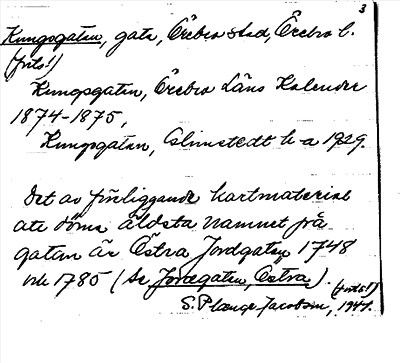 3
Kungsgatan, gata, Örebro stad, Örebro l.
(forts!)
Kungsgatan, Örebro Läns Kalender
1874-1875,
Kungsgatan, Almstedt h a 1929.
Det av föreliggande kartmaterial
att döma äldsta namnet på
gatan är Östra Jordgatan 1748
och 1785 (Se Jordgatan, Östra).
(forts!)
S. Plænge Jacobson, 1947.